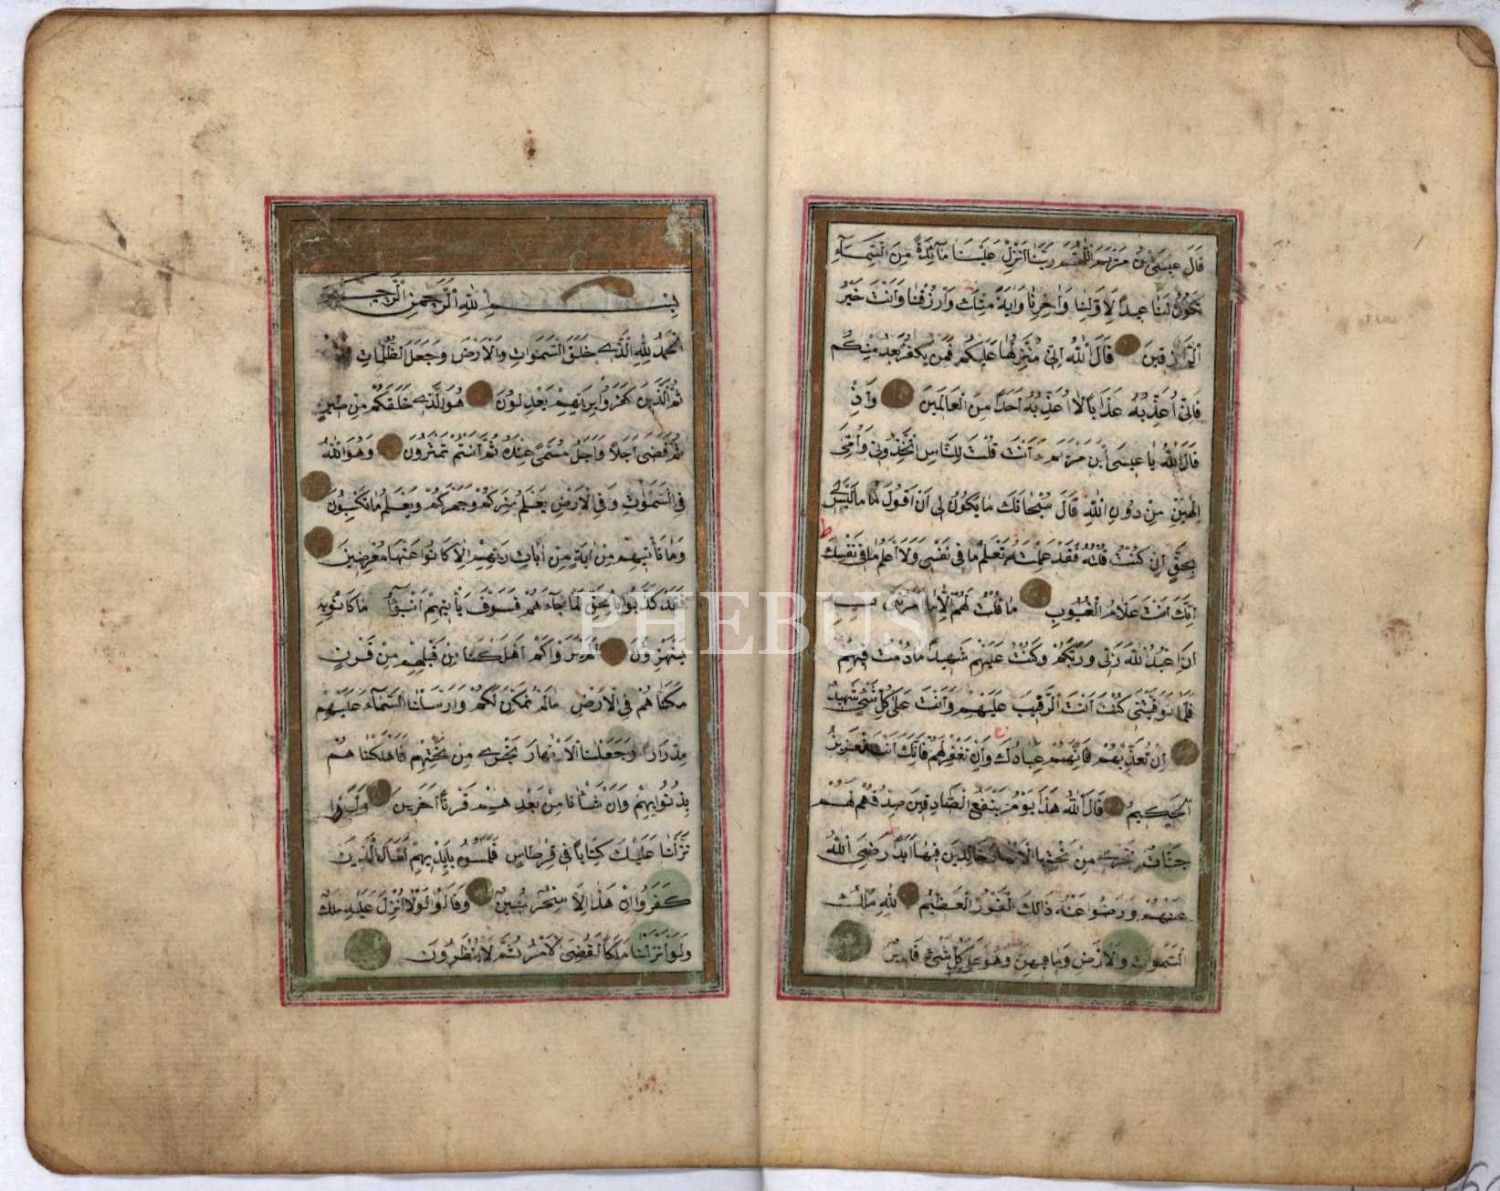 قَالَ عِيسَى بْنُ مَرْيَمَ اللّٰهُمَّ رَبَّنَا اَنْزِلْ عَلَيْنَا مَآئِدَةً مِنَ السَّمَآءِ
تَكُونُ لَنَا عِيدًا لِاَوَّلِنَا وَاٰخِرِنَا وَاٰيَةً مِنْكَ وَارْزُقْنَا وَاَنْتَ خَيْرُ
الرَّازِقِينَ قَالَ اللّٰهُ اِنِّى مُنَزِّلُهَا عَلَيْكُمْ فَمَنْ يَكْفُرْ بَعْدُ مِنْكُمْ
فَاِنِّى اُعَذِّبُهُ عَذَابًا لَا اُعَذِّبُهُ اَحَدًا مِنَ الْعَالَمِينَ وَاِذْ
قَالَ اللّٰهُ يَا عِيسَى ابْنَ مَرْيَمَ ءَاَنْتَ قُلْتَ لِلنَّاسِ اتَّخِذُونِى وَاُمِّىَ
اِلٰهَيْنِ مِنْ دُونِ اللّٰهِ قَالَ سُبْحَانَكَ مَا يَكُونُ لِى اَنْ اَقُولَ مَا لَيْسَ لِى
بِحَقٍّ اِنْ كُنْتُ قُلْتُهُ فَقَدْ عَلِمْتَهُ تَعْلَمُ مَا فِى نَفْسِى وَلَا اَعْلَمُ مَا فِى نَفْسِكَ
اِنَّكَ اَنْتَ عَلَّامُ الْغُيُوبِ مَا قُلْتُ لَهُمْ اِلَّا مَا اَمَرْتَنِى بِهِ
اَنِ اعْبُدُوا اللّٰهَ رَبِّى وَرَبَّكُمْ وَكُنْتُ عَلَيْهِمْ شَهِيدًا مَا دُمْتُ فِيهِمْ
فَلَمَّا تَوَفَّيْتَنِى كُنْتَ اَنْتَ الرَّقِيبَ عَلَيْهِمْ وَاَنْتَ عَلَى كُلِّ شَىْءٍ شَهِيدٌ
اِنْ تُعَذِّبْهُمْ فَاِنَّهُمْ عِبَادُكَ وَاِنْ تَغْفِرْ لَهُمْ فَاِنَّكَ اَنْتَ الْعَزِيزُ
الْحَكِيمُ قَالَ اللّٰهُ هَذَا يَوْمُ يَنْفَعُ الصَّادِقِينَ صِدْقُهُمْ لَهُمْ
جَنَّاتٌ تَجْرِى مِنْ تَحْتِهَا الْاَنْهَارُ خَالِدِينَ فِيهَا اَبَدًا رَضِىَ اللّٰهُ
عَنْهُمْ وَرَضُوا عَنْهُ ذَالِكَ الْفَوْزُ الْعَظِيمُ لِلّٰهِ مُلْكُ
السَّمٰوَاتِ وَالْاَرْضِ وَمَا فِيهِنَّ وَهُوَ عَلَى كُلِّ شَىْءٍ قَدِيرٌ
بِسْمِ اللّٰهِ الرَّحْمٰنِ الرَّحِيمِ
اَلْحَمْدُ لِلّٰهِ الَّذِى خَلَقَ السَّمٰوَاتِ وَالْاَرْضَ وَجَعَلَ الظُّلُمَاتِ
ثُمَّ الَّذِينَ كَفَرُوا بِرَبِّهِمْ يَعْدِلُونَ هُوَ الَّذِى خَلَقَكُمْ مِنْ طِينٍ
ثُمَّ قَضَى اَجَلًا وَاَجَلٌ مُسَمًّى عِنْدَهُ ثُمَّ اَنْتُمْ تَمْتَرُونَ وَهُوَ اللّٰهُ
فِى السَّمٰوَاتِ وَفِى الْاَرْضِ يَعْلَمُ سِرَّكُمْ وَجَهْرَكُمْ وَيَعْلَمُ مَا تَكْسِبُونَ
وَمَا تَأْتِيهِمْ مِنْ اٰيَةٍ مِنْ اٰيَاتِ رَبِّهِمْ اِلَّا كَانُوا عَنْهَا مُعْرِضِينَ
فَقَدْ كَذَّبُوا بِالْحَقِّ لَمَّا جَآءَهُمْ فَسَوْفَ يَأْتِيهِمْ اَنْبٰٓؤُا مَا كَانُوا بِهِ
يَسْتَهْزِؤُنَ اَلَمْ يَرَوْا كَمْ اَهْلَكْنَا مِنْ قَبْلِهِمْ مِنْ قَرْنٍ
مَكَّنَّاهُمْ فِى الْاَرْضِ مَا لَمْ نُمَكِّنْ لَكُمْ وَاَرْسَلْنَا السَّمَآءَ عَلَيْهِمْ
مِدْرَارًا وَجَعَلْنَا الْاَنْهَارَ تَجْرِى مِنْ تَحْتِهِمْ فَاَهْلَكْنَاهُمْ
بِذُنُوبِهِمْ وَاَنْشَأْنَا مِنْ بَعْدِهِمْ قَرْنًا اٰخَرِينَ وَلَوْ
نَزَّلْنَا عَلَيْكَ كِتَابًا فِى قِرْطَاسٍ فَلَمَسُوهُ بِاَيْدِيهِمْ لَقَالَ الَّذِينَ
كَفَرُوا اِنْ هَذَا اِلَّا سِحْرٌ مُبِينٌ وَقَالُوا لَوْلَا اُنْزِلَ عَلَيْهِ مَلَكٌ
وَلَوْ اَنْزَلْنَا مَلَكًا لَقُضِىَ الْاَمْرُ ثُمَّ لَا يُنْظَرُونَ
PHEBUS